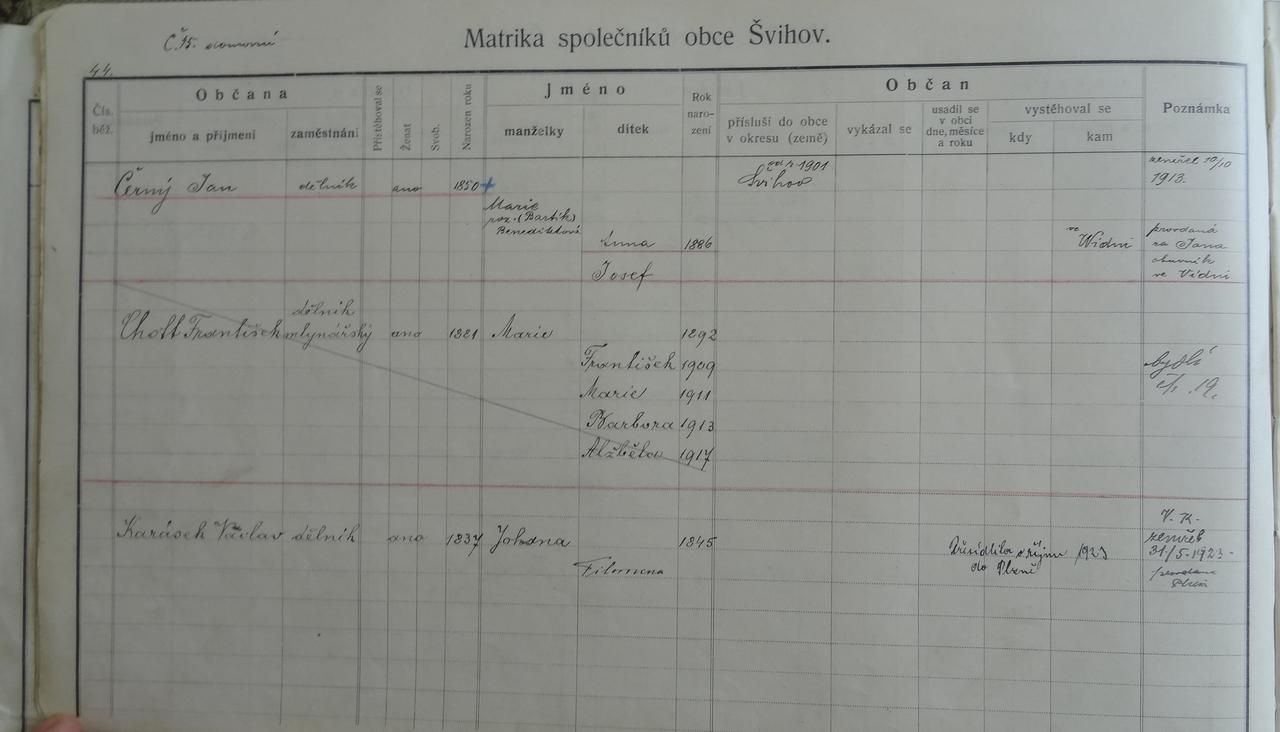 Č. 15. domovní
Matrika společníků obce Švihov.
44.
Čís. běž.
Občana
jméno a příjmení
zaměstnání
Přistěhoval se
Ženat
Svob.
Narozen roku
Jméno
manželky
dítek
Rok naro- zení
Občan
přísluší do obce v okresu (země)
vykázal se
usadil se v obci dne, měsíce a roku
vystěhoval se
kdy
kam
Poznámka
Černý Jan dělník ano 1850 +
od r. 1901
Švihov
zemřel 10/10
1913.
Marie
roz. (Bartík)
Benediktová
Anna 1886 ve Vídni
provdaná
za Jana
obuvník
ve Vídni
Josef
Chott František dělník
mlynářský ano 1881 Marie 1892
František 1909
Marie 1911
Barbora 1913
Alžběta 1917
bydlí
čís. 19.
Karásek Václav dělník ano 1837 Johana 1845
V. K.
zemřel
31/5 - 1923 -
Filomena
Přesídlila v říjnu 1923
do Plzně
provdana
Plzeň